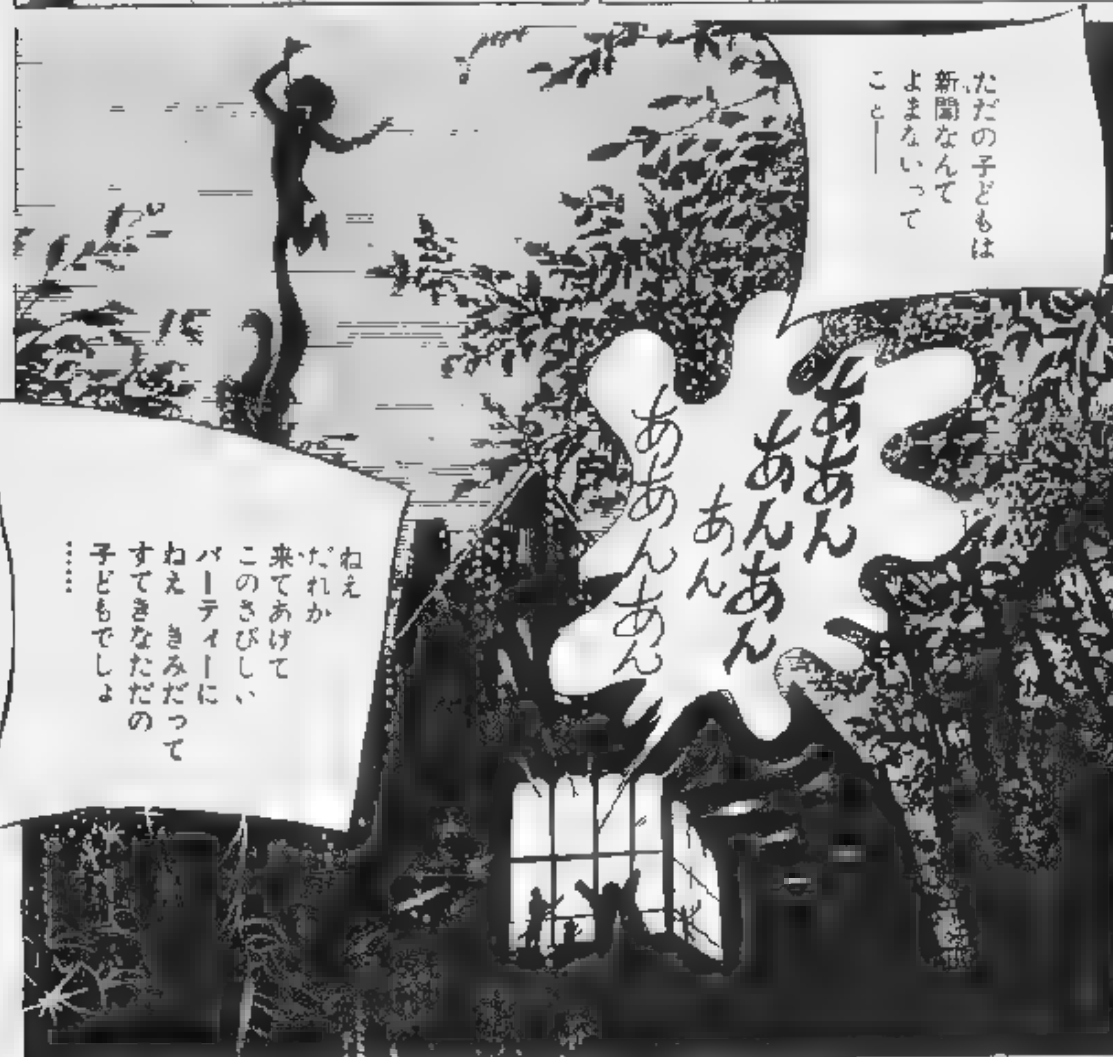 ただの子どもは
新聞なんて
よまないって
こと──
ああん
あんあん
あん
あん
ああんあん
ねえ
だれか
来てあげて
このさびしい
パーティーに
ねえ きみだって
すてきなただの
子どもでしょ
……